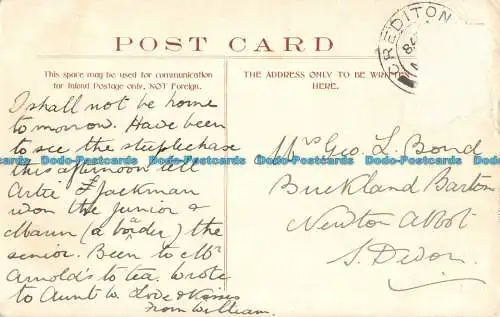 POST CARD
CREDITON
This space may be used for communication
for Inland Postage only, NOT Foreign.
THE ADDRESS ONLY TO BE WRITTEN
HERE.
I shall not be home
to morrow. Have been
to see the steeplechase
this afternoon tell
Artie F Jackman
won the Junior &
Mann (a boarder) the
senior. Been to Mr
Arnold's to tea. Wrote
to Aunt W. Love & Kisses
From William.
Mrs Geo. L. Bond
Buckland Barton
Newton Abbot
S. Devon.
Dodo-Postcards Dodo-Postcards Dodo-Postcards Dodo-Postcards Dodo-Postcards Dodo-Postcards